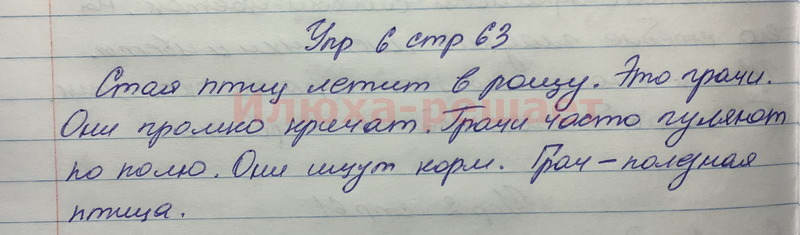 Упр 6 стр 63
Стая птиц летит в рощу. Это грачи.
Илюха-решает
Они громко кричат. Грачи часто гуляют
по полю. Они ищут корм. Грач – полезная
птица.